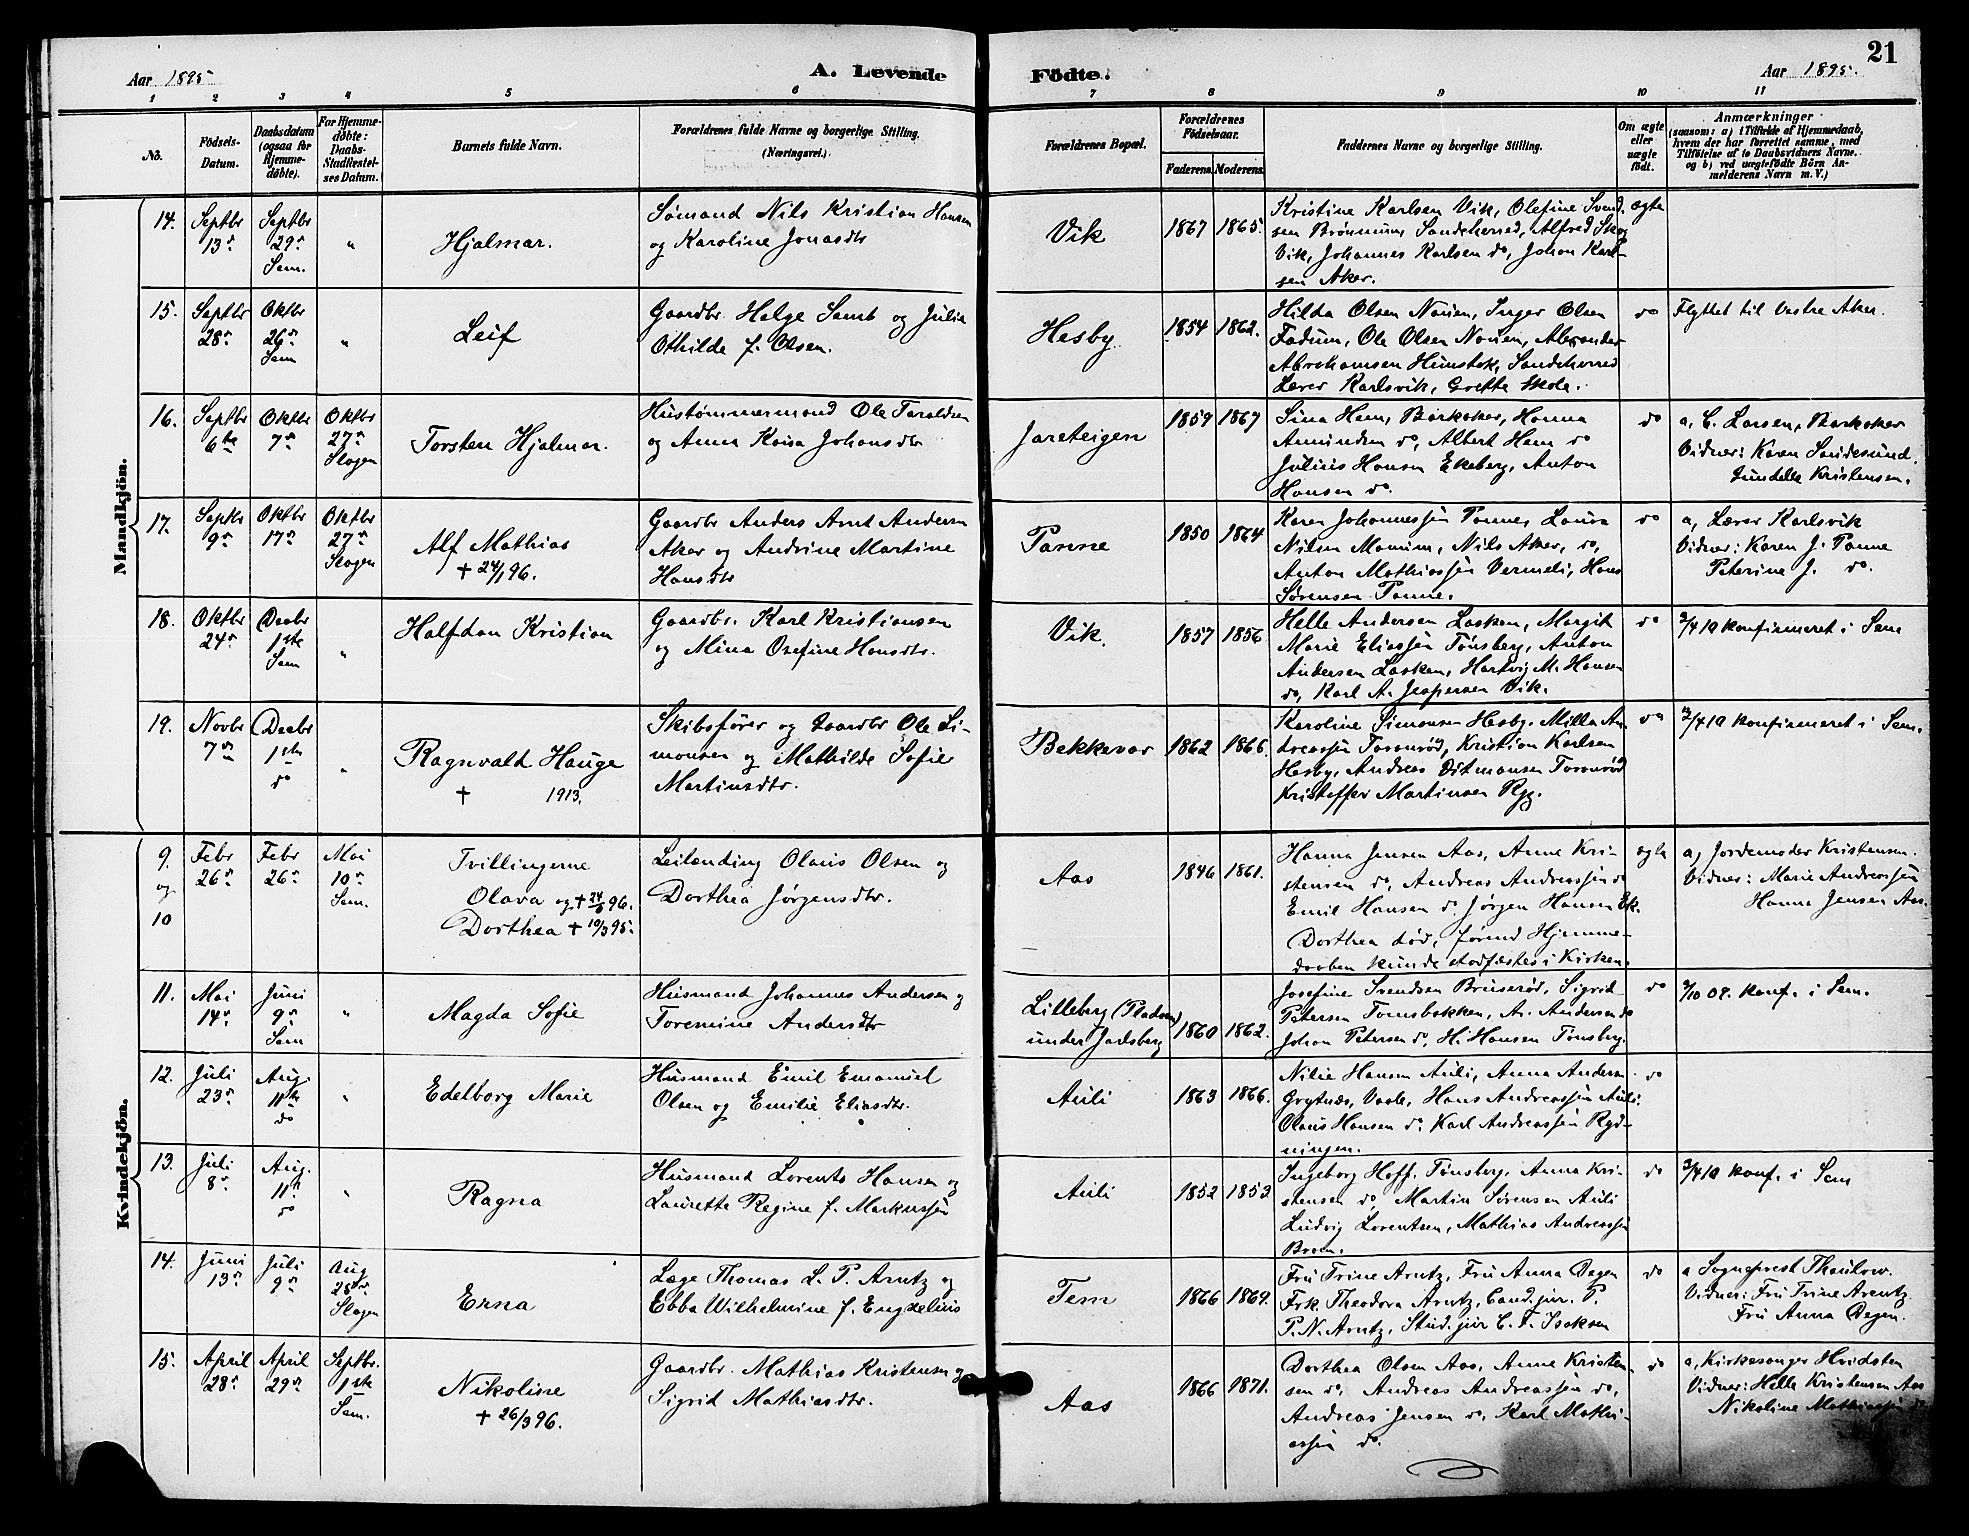 21
Aar 1895
A. Levende
Födte.
Aar 1895.
1 2 3 4 5 6 7 8 9 10 11
No.
Födsels-
Datum.
Daabsdatum
(ogsaa for
Hjemme-
döbte).
For Hjemme-
döbte:
Daabs-
Stadfæstel-
ses Datum.
Barnets fulde Navn.
Forældrenes fulde Navne og borgerlige Stilling.
(Næringsvei.)
Forældrenes Bopæl.
Forældrenes
Födselsaar.
Faderens. Moderens.
Faddernes Navne og borgerlige Stilling.
Om ægte
eller
uægte
födt.
Anmærkninger
(saasom: a) i Tilfælde af Hjemmedaab,
hvem der har forrettet samme, med
Tilföielse af to Daabsvidners Navne,
og b) ved uægtefödte Börn An-
melderens Navn m. V.)
Mandkjön.
14.
Septbr
13de
Septbr
29de
Sem.
"
Hjalmar.
Sømand Nils Kristian Hansen
og Karoline Jonasdtr
Vik
1867 1865.
Kristine Karlsen Vik, Olefine Svend-
sen Brønnum, Sandeherred, Alfred Skog
Vik, Johannes Karlsen do, Johan Karl-
sen Aker.
ægte
15.
Septbr
28de
Oktbr
26de
Sem
"
Leif
Gaardbr. Helge Semb og Julie
Othilde f. Olsen.
Hesby
1854 1862.
Hilda Olsen Nouen, Inger Olsen
Fadum, Ole Olsen Nouen, Alexander
Abrahamsen Himstok, Sandeherred
Lærer Karlsvik, Gretta Skole.
do
Flyttet til Vestre Aker.
16.
Septbr
6te
Oktbr
7de
Oktbr
27de
Slagen
Torsten Hjalmar.
Hustømmermand Ole Taraldsen
og Anna Kaisa Johansdtr
Jareteigen
1859 1867
Sina Hem, Barkaker, Hanna
Amundsen do, Albert Hem do
Julius Hansen Ekeberg, Anton
Hansen do.
do
a, C. Larsen, Barkaker
Vidner: Karen Sandesund.
Gundella Kristensen.
17.
Septbr
9de
Oktbr
17de
Oktbr
27de
Slagen
Alf Mathias
+ 24/1 96.
Gaardbr Anders Arnt Andersen
Aker og Andrine Martine
Hansdtr
Tanne
1850 1864
Karen Johannessen Tannes Laura
Nilsen Manum, Nils Aker, do,
Anton Mathiassen Vermeli, Hans
Sørensen Tanne.
do
a, Lærer Karlsvik
Vidner: Karen J. Tanne
Peterine J. do.
18.
Oktbr
24de
Decbr
1ste
Sem
"
Halfdan Kristian
Gaardbr. Karl Kristiansen
og Mina Osefine Hansdtr.
Vik.
1857 1856
Helle Andersen Lasken, Margit
Marie Eliassen Tønsberg, Anton
Andersen Lasken, Hartvig M. Hansen
do, Karl A. Jespersen Vik.
do
3/4 10 konfirmeret i Sem
19.
Novbr
7de
Decbr
1ste
do
"
Ragnvald Hauge
+ 1913.
Skibsfører og Gaardbr Ole Si-
monsen og Mathilde Sofie
Martinsdtr.
Bekkevar
1862 1866.
Karoline Simonsen Hesby, Milla An-
dreassen Taranrød, Kristian Karlsen
Hesby, Andreas Ditmansen Taranrød
Kristoffer Martinsen Ryg.
do
3/4 10 konfirmeret i Sem.
Kvindekjön.
9.
og
10
Febr
26de
Febr
26de
Mai
10de
Sem.
Tvillingerne
Olava og + 24/6 96.
Dorthea + 19/3 95.
Leilænding Olaus Olsen og
Dorthea Jørgensdtr.
Aas
1846 1861.
Hanna Jensen Aas, Anne Kri-
stensen do, Andreas Andreassen do
Emil Hansen do, Jørgen Hansen Ek.
Dorthea død, førend Hjemme-
daaben kunde stadfæstes i Kirken.
ægte
a, Jordemoder Kristensen.
Vidner: Marie Andreassen
Hanna Jensen Aas.
11.
Mai
14de
Juni
9de
Sem
"
Magda Sofie
Husmand Johannes Andersen og
Toremine Andersdtr
Lilleberg (Pladsen)
under Jarlsberg
1860 1862.
Josefine Svendsen Bruserød, Sigrid
Petersen Tomsbakken, A. Andersen do
Johan Petersen do, H. Hansen Tønsberg.
do
3/10 09. konf. i Sem.
12.
Juli
23de
Aug.
11te
do
"
Edelborg Marie
Husmand Emil Emanuel
Olsen og Emilie Eliasdtr.
Auli
1863 1866.
Nilie Hansen Auli, Anna Andersen
Grytnæs, Vaale, Hans Andreassen Auli.
Olaus Hansen do, Karl Andreassen Ryd-
ningen.
do
13.
Juli
8de
Aug.
11te
do
"
Ragna
Husmand Lorents Hansen og
Lauretta Regine f. Markussen
Auli
1852 1853.
Ingeborg Hoff, Tønsberg, Anna Kri-
stensen do, Martin Sørensen Auli
Ludvig Lorentsen, Mathias Andreassen
Broen.
do
3/4 10 konf. i Sem
14.
Juni
13de
Juli
9de
Aug
28de
Slagen
Erna
Læge Thomas L. P. Arntz og
Ebba Wilhelmine f. Engzelius
Tem
1866 1869.
Fru Trine Arntz, Fru Anna Degen
Frk. Theodora Arntz, Cand. jur. P.
P. N. Arntz, Stud. jur C. F. Isaksen
do
a Sogneprest Thaulow.
Vidner: Fru Trine Arentz.
Fru Anna Degen.
15.
April
28de
April
29de
Septbr.
1ste
Sem.
Nikoline
+ 26/3 96.
Gaardbr. Mathias Kristensen og
Sigrid Mathiasdtr.
Aas
1866 1871.
Dorthea Olsen Aas, Anne Kristen-
sen do, Andreas Andreassen do,
Andreas Jensen do, Karl Mathi-
assen do.
do
a, Kirkesanger Hvidsten
Vidner: Helle Kristensen Aas
Nikoline Mathiassen do